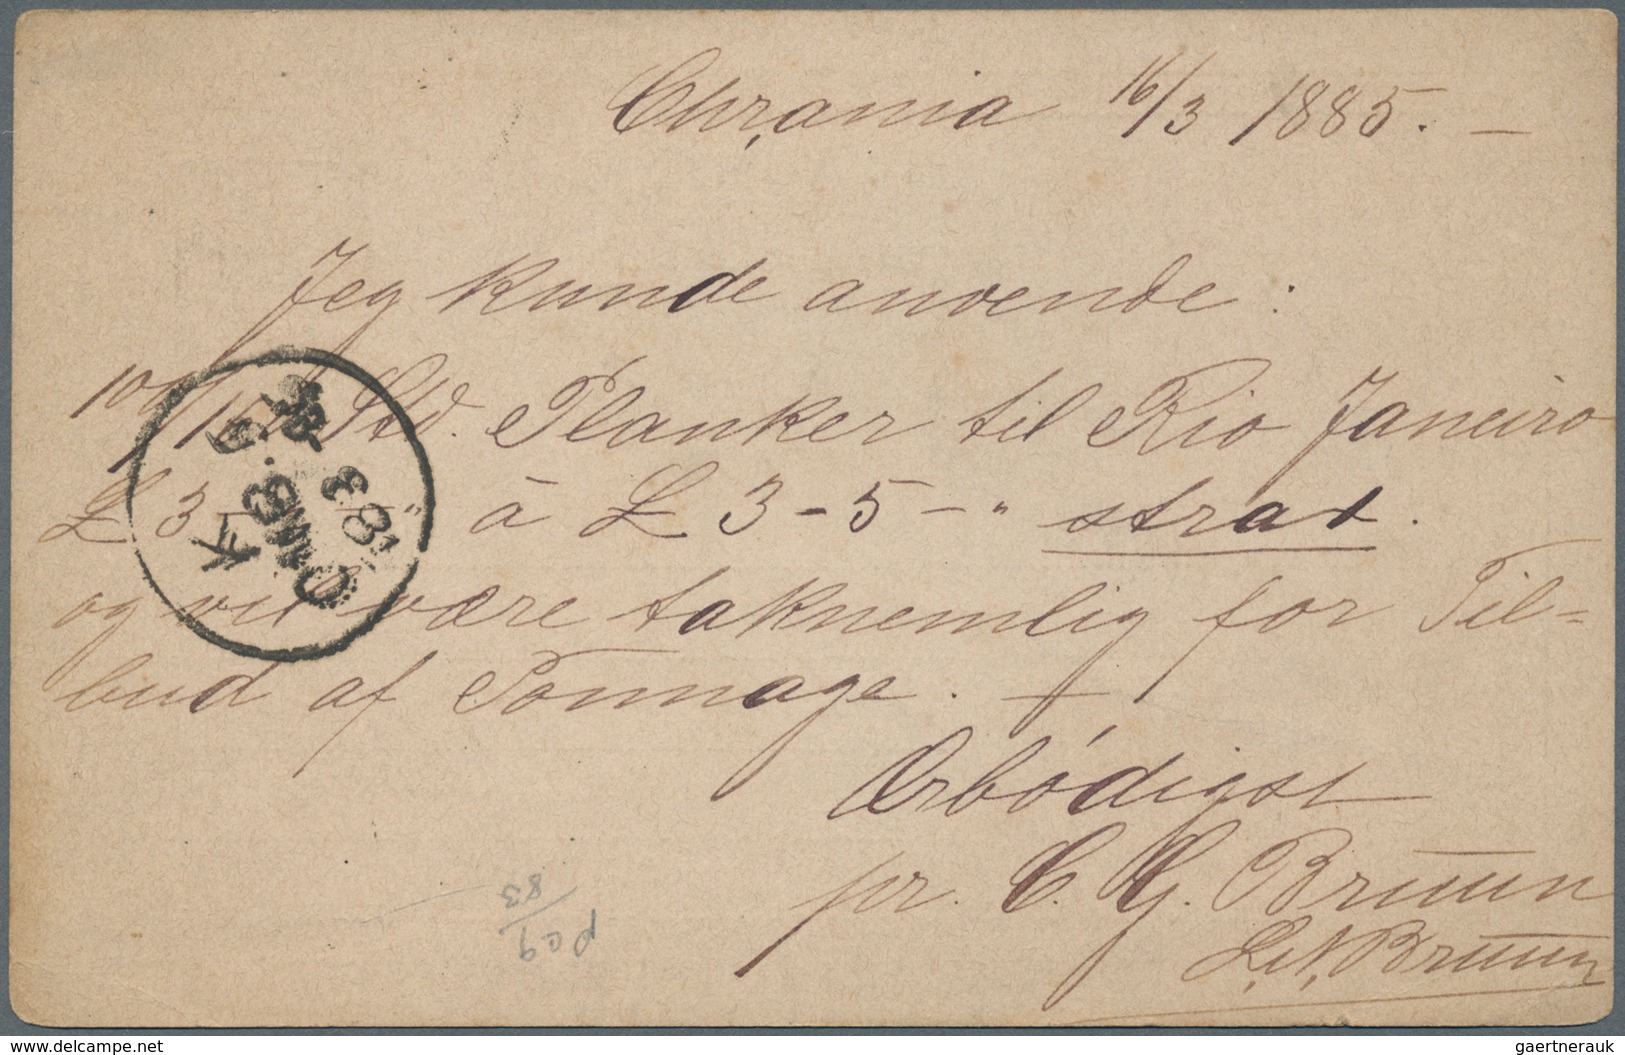 Chr,ania 16/3 1885. —
Jeg kunde anvende :
100/ Std. Planker til Rio Janeiro
£ 3 - " à £ 3 - 5 - " strax.
og vil være taknemlig for Til=
bud af Tonnage. —
Ærbødigst
pr. C. G. Bruun
Bruun
K
OMB. 3
18 3
Pcg
83
www.delcampe.net
gaertnerauk